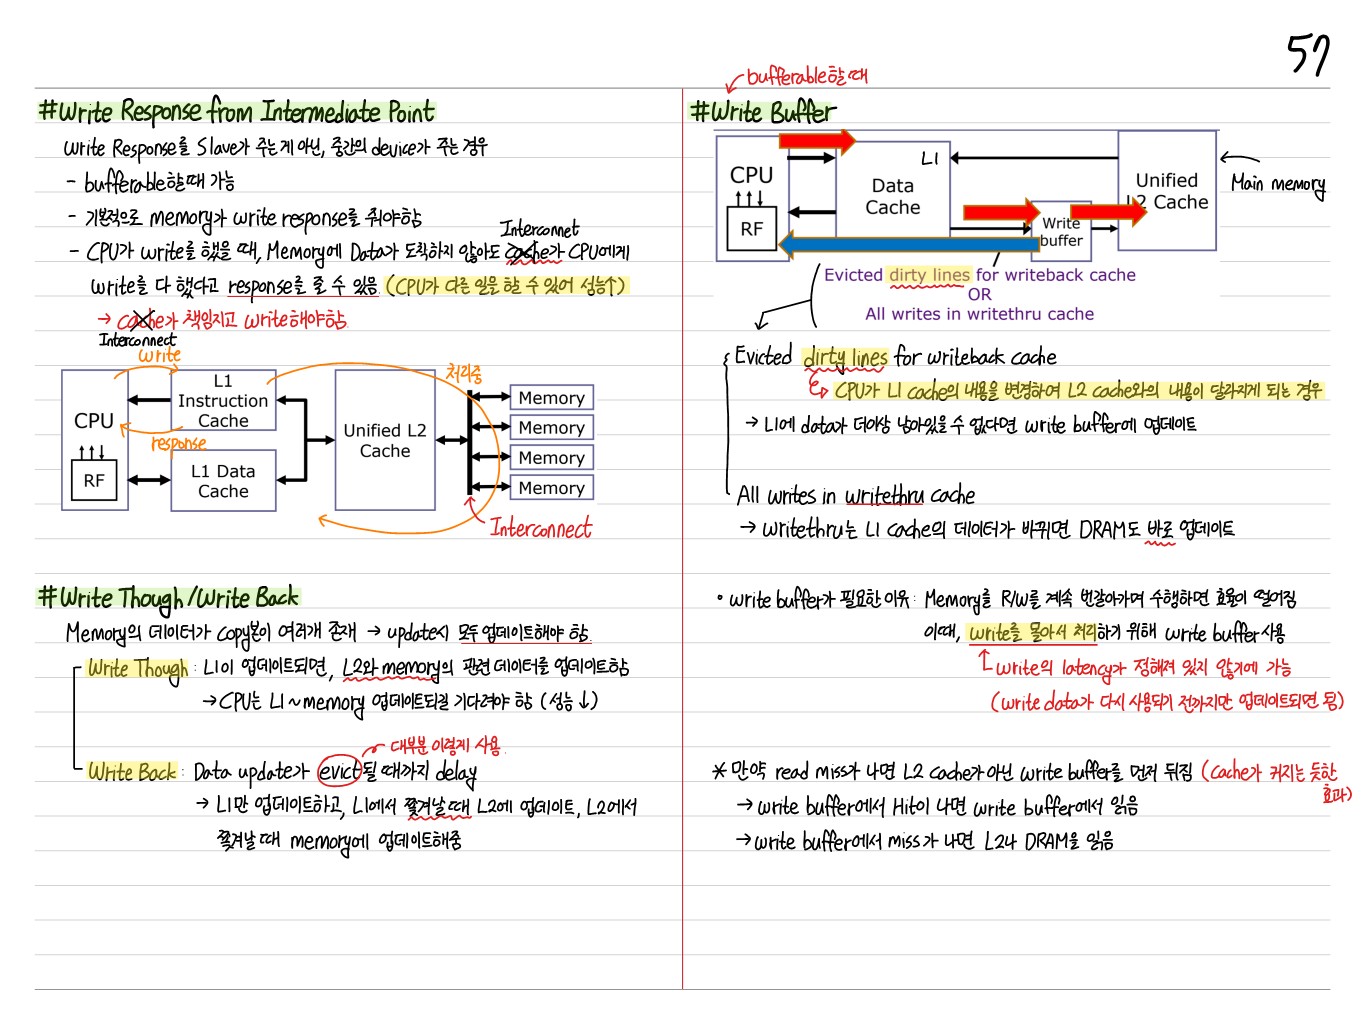 57
#Write Response from Intermediate Point
Write Response를 Slave가 주는게 아닌, 중간의 device가 주는 경우
- bufferable할때 가능
- 기본적으로 memory가 write response를 줘야함
Interconnet
- CPU가 write를 했을 때, Memory에 Data가 도착하지 않아도 cache가 CPU에게
write를 다 했다고 response를 줄 수 있음 (CPU가 다른 일을 할 수 있어 성능↑)
→ cache가 책임지고 write해야함
Interconnect
write
처리중
CPU
RF
L1
Instruction
Cache
response
L1 Data
Cache
Unified L2
Cache
Memory
Memory
Memory
Memory
Interconnect
#Write Though/Write Back
Memory의 데이터가 copy본이 여러개 존재 → update시 모두 업데이트해야 함
Write Though : L1이 업데이트되면, L2와 memory의 관련 데이터를 업데이트함
→ CPU는 L1~memory 업데이트되길 기다려야 함 (성능↓)
대부분 이렇게 사용
Write Back : Data update가 evict될 때까지 delay
→ L1만 업데이트하고, L1에서 쫓겨날때 L2에 업데이트, L2에서
쫓겨날 때 memory에 업데이트해줌
bufferable할때
#Write Buffer
CPU
RF
L1
Data
Cache
Write
buffer
Unified
L2 Cache
Main memory
Evicted dirty lines for writeback cache
OR
All writes in writethru cache
Evicted dirty lines for writeback cache
CPU가 L1 cache의 내용을 변경하여 L2 cache와의 내용이 달라지게 되는 경우
→ L1에 data가 더이상 남아있을 수 없다면 write buffer에 업데이트
All writes in writethru cache
→ writethru는 L1 cache의 데이터가 바뀌면 DRAM도 바로 업데이트
• write buffer가 필요한 이유: Memory를 R/W를 계속 번갈아가며 수행하면 효율이 떨어짐
이때, write를 몰아서 처리하기 위해 write buffer 사용
write의 latency가 정해져 있지 않기에 가능
(write data가 다시 사용되기 전까지만 업데이트되면 됨)
* 만약 read miss가 나면 L2 cache가 아닌 write buffer를 먼저 뒤짐 (cache가 커지는 듯한
효과)
→ write buffer에서 Hit이 나면 write buffer에서 읽음
→ write buffer에서 miss가 나면 L2나 DRAM을 읽음